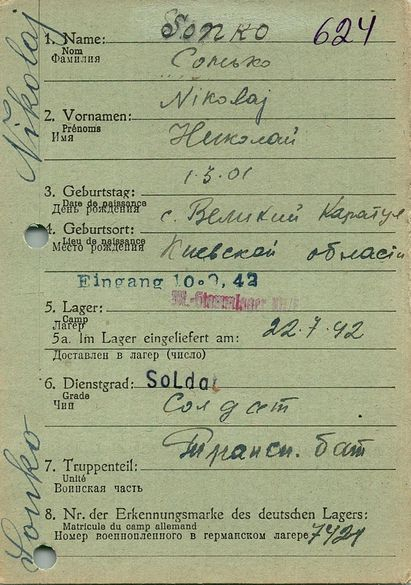 Nikolaj
1. Name: Sonko 624
Nom
Фамилия Сонько
Nikolaj
2. Vornamen:
Prénoms
Имя Николай
1.5.01
3. Geburtstag:
Date de naissance
День рождения с. Великий Каратул
4. Geburtsort:
Lieu de naissance
Место рождения Киевской области
Eingang 10.9.42
5. Lager:
Camp
Лагер
5a. Im Lager eingeliefert am: 22.7.42
Доставлен в лагер (число)
6. Dienstgrad: Soldat
Grade
Чин Солдат
Трансп. бат
7. Truppenteil:
Unité
Воинская часть
8. Nr. der Erkennungsmarke des deutschen Lagers:
Matricule du camp allemand
Номер военнопленного в германском лагере 7421
Sonko